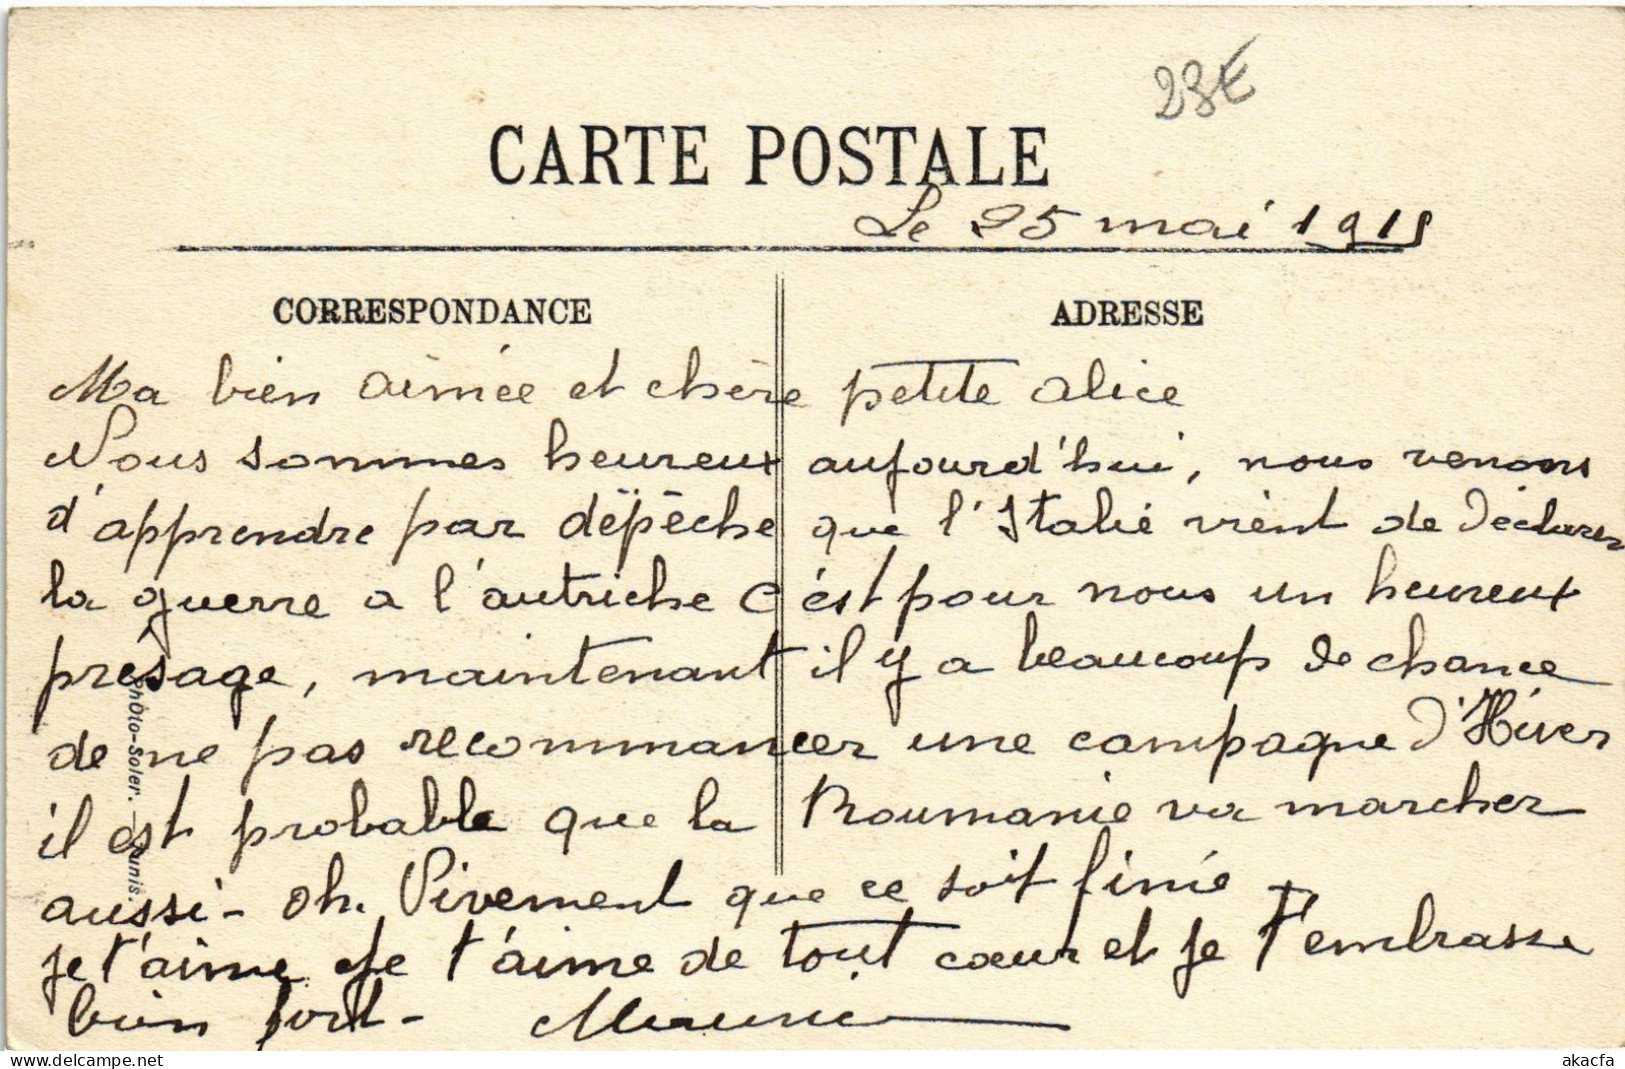 23€
CARTE POSTALE
Le 25 mai 1915
CORRESPONDANCE
ADRESSE
Ma bien aimée et chère petite alice
Nous sommes heureux aujourd'hui, nous venons
d'apprendre par dépêche que l'Italie vient de déclarer
la guerre a l'autriche C'est pour nous un heureux
présage, maintenant il y a beaucoup de chance
de ne pas recommancer une campagne d'Hiver
il est probable que la Roumanie va marcher
aussi - oh. Vivement que ce soit finie
je t'aime Je t'aime de tout cœur et je t'embrasse
bien fort - Maurice
Photo-Soler. - Tunis.
akacfa